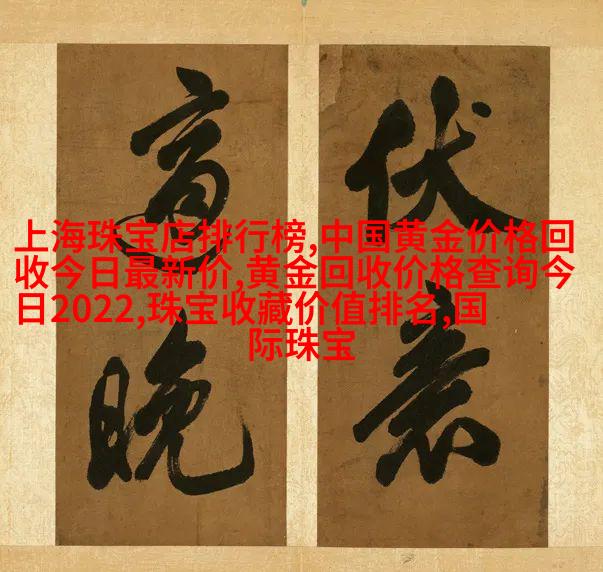 上海珠宝店排行榜,中国黄金价格回
收今日最新价,黄金回收价格查询今
日2022,珠宝收藏价值排名,国
际珠宝
伏
晚